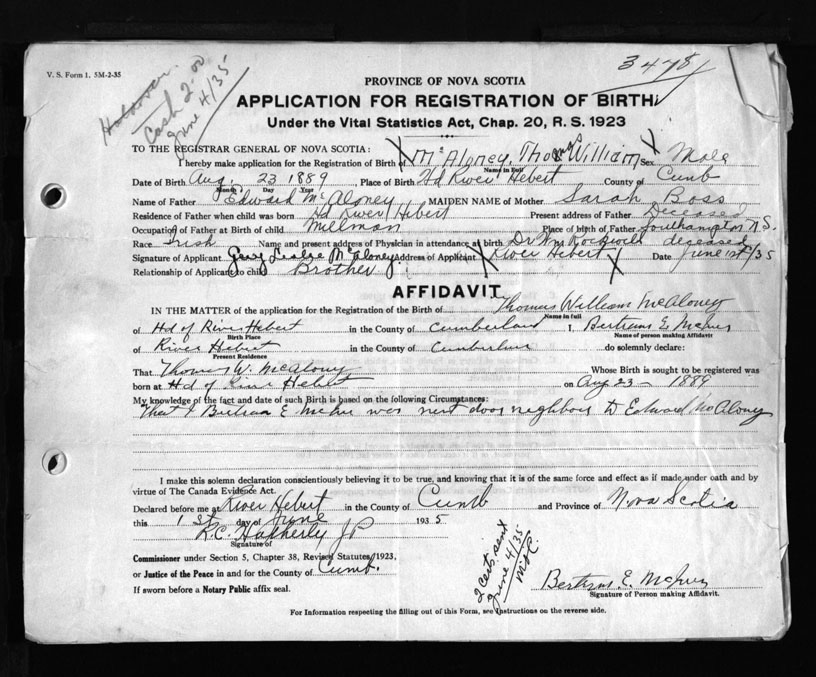 V. S. Form 1. 5M-2-35
Cash 2.00
June 4/35
34781
PROVINCE OF NOVA SCOTIA
APPLICATION FOR REGISTRATION OF BIRTH
Under the Vital Statistics Act, Chap. 20, R. S. 1923
TO THE REGISTRAR GENERAL OF NOVA SCOTIA:
I hereby make application for the Registration of Birth of McAloney, Thomas William Sex Male
Name in Full
Date of Birth Aug. 23 1889, Place of Birth Hd River Hebert County of Cumb
Month Day Year
Name of Father Edward McAloney MAIDEN NAME of Mother Sarah Boss
Residence of Father when child was born Hd River Hebert Present address of Father Deceased
Occupation of Father at Birth of child Millman Place of birth of Father Southampton N.S.
Race Irish Name and present address of Physician in attendance at birth Dr Wm Rockwell deceased
Signature of Applicant Guy Leslie McAloney Address of Applicant River Hebert Date June 1st/35
Relationship of Applicant to child Brother
AFFIDAVIT
IN THE MATTER of the application for the Registration of Birth of Thomas William McAloney
Name in full
of Hd of River Hebert in the County of Cumberland I, Bertram E.
Birth Place Name of person making Affidavit
of River Hebert in the County of Cumberland do solemnly declare:
Present Residence
That Thomas W. McAlony Whose Birth is sought to be registered was
born at Hd of River Hebert on Aug 23 - 1889
My knowledge of the fact and date of such Birth is based on the following Circumstances:
That I Bertram E. was next door neighbour to Edward McAlony
I make this solemn declaration conscientiously believing it to be true, and knowing that it is of the same force and effect as if made under oath and by
virtue of The Canada Evidence Act.
Declared before me at River Hebert in the County of Cumb and Province of Nova Scotia
this 1st day of June 1935
R.C. Hatherly JP
Signature of
Commissioner under Section 5, Chapter 38, Revised Statutes 1923,
or Justice of the Peace in and for the County of Cumb.
If sworn before a Notary Public affix seal.
2 Certs. sent
June 4/35
Bertram E.
Signature of Person making Affidavit.
For Information respecting the filling out of this Form, see Instructions on the reverse side.